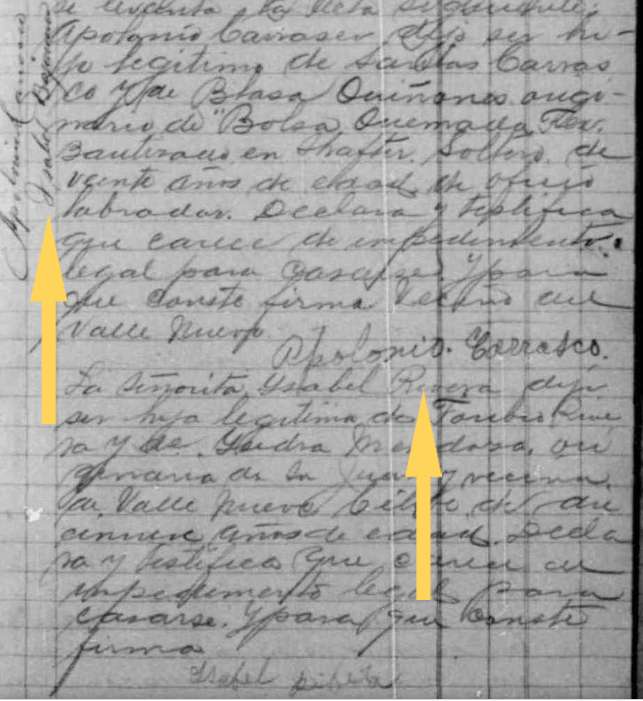 se levanta la acta siguiente:
Apolonio Carrasco dijo ser hi-
jo legitimo de
Carras
co y de Blasa Quiñones origi-
nario de Bolsa Quemada, Tex.
Bautizado en Shafter. Soltero. de
veinte años de edad de oficio
labrador. Declara y testifica
que carece de impedimento
legal para casarse. Y para
que conste firma
Valle Nuevo.
Apolonio. Carrasco.
La Señorita Ysabel Rivera dijo
ser hija legitima de Toribio Rive
ra y de Mendoza, ori
ginaria de y vecina
de Valle Nuevo de
años de edad. Decla
ra y testifica que carece de
impedimento legal para
casarse. Y para que conste
firma
Isabel
Apolonio
Isabel